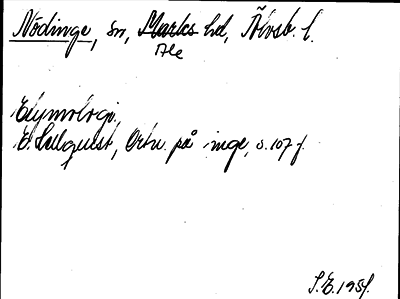 Nödinge, sn, Marks hd, Älvsb. l.
Ale
Etymologi.
E. Hellquist, Ortn. på -inge, s. 107 f.
S.E. 1951.